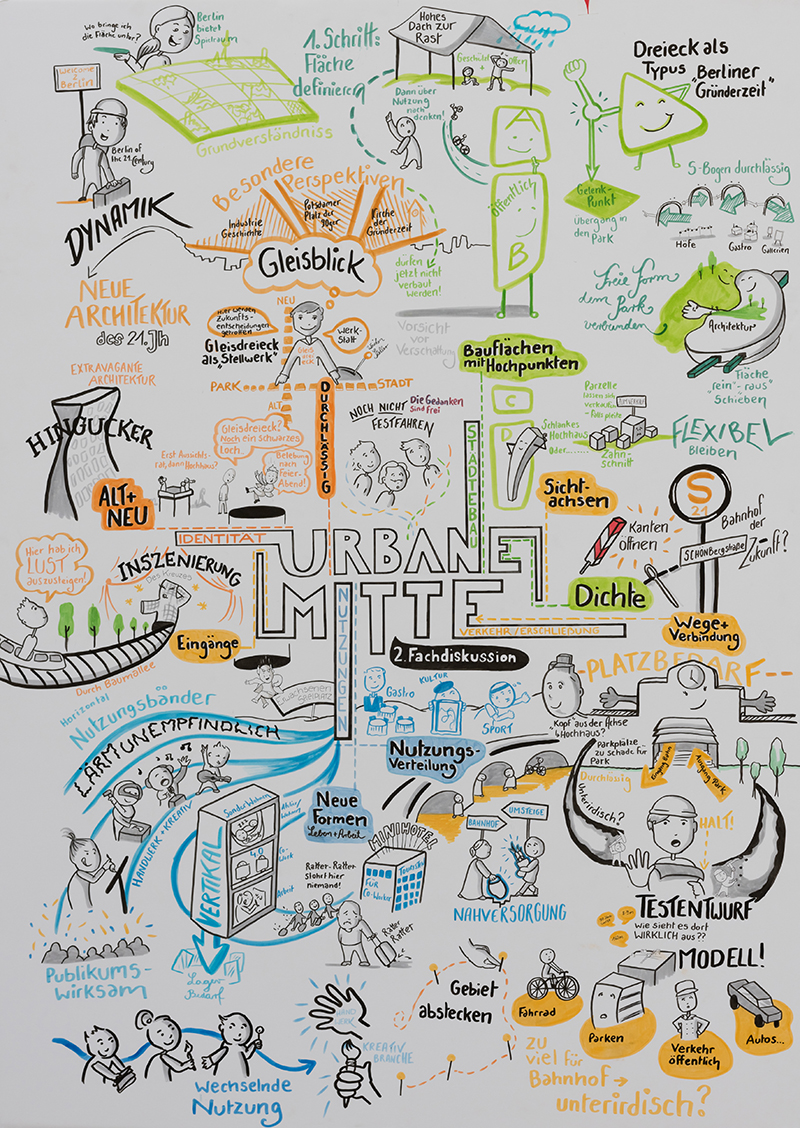 Wo bringe ich
die Fläche unter?
Berlin
bietet
Spielraum
Welcome
2
Berlin
Berlin of
the 21. Century
Grundverständniss
1. Schritt:
Fläche
definieren
Hohes
Dach zur
Rast
Geschützt
+
offen
Dann über
Nutzung
noch
denken!
A
Öffentlich
B
Dreieck als
Typus „Berliner
Gründerzeit"
Gelenk-
Punkt
Übergang in
den Park
S-Bogen durchlässig
Höfe
Gastro
Gallerien
DYNAMIK
Besondere
Perspektiven
Industrie
Geschichte
Potsdamer
Platz der
90ger
Kirche
der
Gründerzeit
Gleisblick
dürfen
jetzt nicht
verbaut
werden!
Vorsicht
vor
Verschattung
Freie Form
dem Park
verbunden
Architektur
Fläche
"rein"-raus"
Schieben
NEUE
ARCHITEKTUR
des 21.Jh
Hier werden
Zukunfts-
entscheidungen
getroffen
Gleisdreieck
als „Stellwerk"
NEU
WERK-
STATT
PARK
STADT
ALT
DURCHLÄSSIG
Bauflächen
mit Hochpunkten
C
D
STÄDTEBAU
Schlankes
Hochhaus
Oder......
Parzelle
lassen sich
verkaufen
Zahn-
Schnitt
FLEXIBEL
Bleiben
EXTRAVAGANTE
ARCHITEKTUR
HINGUCKER
ALT+
NEU
Gleisdreieck?
Noch ein schwarzes
Loch.
Belebung
nach
Feier-
Abend!
NOCH NICHT
FESTFAHREN
Die Gedanken
sind frei
Sicht-
achsen
Kanten
öffnen
S
21
Bahnhof
der
Zukunft?
SCHÖNBERGSTRAßE
IDENTITÄT
URBANE
MITTE
Dichte
VERKEHR/ERSCHLIEßUNG
Wege+
Verbindung
Hier hab ich
LUST
auszusteigen!
INSZENIERUNG
Des Kreuzes
Eingänge
Durch Baumallee
NUTZUNGEN
2. Fachdiskussion
Erwachsenen
Spielplatz
Gastro
KULTUR
SPORT
Nutzungs-
Verteilung
"Kopf aus der Achse
Hochhaus?
PLATZBEDARF
Parkplätze
zu schade für
Park
Durchlässig
Eingang Bahn
Ausgang Park
Unterirdisch?
HALT!
Horizontal
Nutzungsbänder
LÄRMUNEMPFINDLICH
HANDWERK + KREATIV
VERTIKAL
Co-
Work
4.0
Arbeit
Neue
Formen
Leben + Arbeit
MINIHOTEL
FÜR
Co-Worker
Touristen
Ratter-Ratter
Stört hier
niemand!
Ratter
Ratter
BAHNHOF
UMSTEIGE
NAHVERSORGUNG
TESTENTWURF
Wie sieht es dort
WIRKLICH aus??
MODELL!
Publikums-
wirksam
Lager
Bedarf
Gebiet
abstecken
HAND
WERK
KREATIV
BRANCHE
Wechselnde
Nutzung
Fahrrad
Parken
Verkehr
öffentlich
Autos...
zu
viel für
Bahnhof→
unterirdisch?